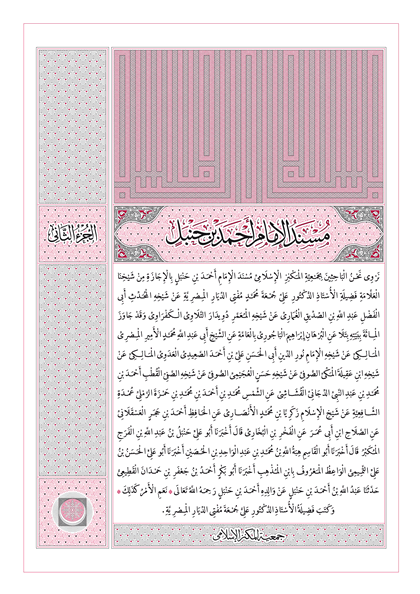 مُسْنَدُ الإِمَامِ أَحْمَدَ بْنِ حَنْبَل
الجُزْءُ الثَّانِي
نَرْوِي نَحْنُ الْبَاحِثِينَ بِجَمْعِيَّةِ الْمَكْنِزِ الْإِسْلَامِيِّ مُسْنَدَ الْإِمَامِ أَحْمَدَ بْنِ حَنْبَلٍ بِالْإِجَازَةِ مِنْ شَيْخِنَا
الْعَلَّامَةِ فَضِيلَةِ الْأُسْتَاذِ الدُّكْتُورِ عَلِيِّ جُمْعَةَ مُحَمَّدٍ مُفْتِي الدِّيَارِ الْمِصْرِيَّةِ عَنْ شَيْخِهِ الْمُحَدِّثِ أَبِي
الْفَضْلِ عَبْدِ اللهِ بْنِ الصِّدِّيقِ الْغُمَارِيِّ عَنْ شَيْخِهِ الْمُعَمَّرِ دُوِيدَارَ التَّلَاوِيِّ الْكَفْرَاوِيِّ وَقَدْ جَاوَزَ
الْمِائَةَ بِيَقِينٍ عَنِ الْبُرْهَانِ إِبْرَاهِيمَ الْبَاجُورِيِّ بِالْعَامَّةِ عَنِ الشَّيْخِ أَبِي عَبْدِ اللهِ مُحَمَّدٍ الْأَمِيرِ الْمِصْرِيِّ
الْمَالِكِيِّ عَنْ شَيْخِهِ الْإِمَامِ نُورِ الدِّينِ أَبِي الْحَسَنِ عَلِيِّ بْنِ أَحْمَدَ الصَّعِيدِيِّ الْعَدَوِيِّ الْمَالِكِيِّ عَنْ
شَيْخِهِ ابْنِ عَقِيلَةَ الْمَكِّيِّ الصُّوفِيِّ عَنْ شَيْخِهِ حَسَنٍ الْعُجَيْمِيِّ الصُّوفِيِّ عَنْ شَيْخِهِ الصَّفِيِّ الْقُطْبِ أَحْمَدَ بْنِ
مُحَمَّدِ بْنِ عَبْدِ النَّبِيِّ الدَّجَانِيِّ الْقُشَاشِيِّ عَنِ الشَّمْسِ مُحَمَّدِ بْنِ أَحْمَدَ بْنِ مُحَمَّدِ بْنِ حَمْزَةَ الرَّمْلِيِّ عُمْدَةِ
الشَّافِعِيَّةِ عَنْ شَيْخِ الْإِسْلَامِ زَكَرِيَّا بْنِ مُحَمَّدٍ الْأَنْصَارِيِّ عَنِ الْحَافِظِ أَحْمَدَ بْنِ حَجَرٍ الْعَسْقَلَانِيِّ
عَنِ الصَّلَاحِ ابْنِ أَبِي عُمَرَ عَنِ الْفَخْرِ بْنِ الْبُخَارِيِّ قَالَ أَخْبَرَنَا أَبُو عَلِيٍّ حَنْبَلُ بْنُ عَبْدِ اللهِ بْنِ الْفَرَجِ
الْمُكَبِّرُ قَالَ أَخْبَرَنَا أَبُو الْقَاسِمِ هِبَةُ اللهِ بْنُ مُحَمَّدِ بْنِ عَبْدِ الْوَاحِدِ بْنِ الْحُصَيْنِ أَخْبَرَنَا أَبُو عَلِيٍّ الْحَسَنُ بْنُ
عَلِيٍّ التَّمِيمِيُّ الْوَاعِظُ الْمَعْرُوفُ بِابْنِ الْمُذْهِبِ أَخْبَرَنَا أَبُو بَكْرٍ أَحْمَدُ بْنُ جَعْفَرِ بْنِ حَمْدَانَ الْقَطِيعِيُّ
حَدَّثَنَا عَبْدُ اللهِ بْنُ أَحْمَدَ بْنِ حَنْبَلٍ عَنْ وَالِدِهِ أَحْمَدَ بْنِ حَنْبَلٍ رَحِمَهُ اللهُ تَعَالَى * نَعَمِ الْأَمْرُ كَذَلِكَ *
وَكَتَبَ فَضِيلَةُ الْأُسْتَاذِ الدُّكْتُورِ عَلِيِّ جُمْعَةَ مُفْتِي الدِّيَارِ الْمِصْرِيَّةِ.
جمعية المكنز الإسلامي